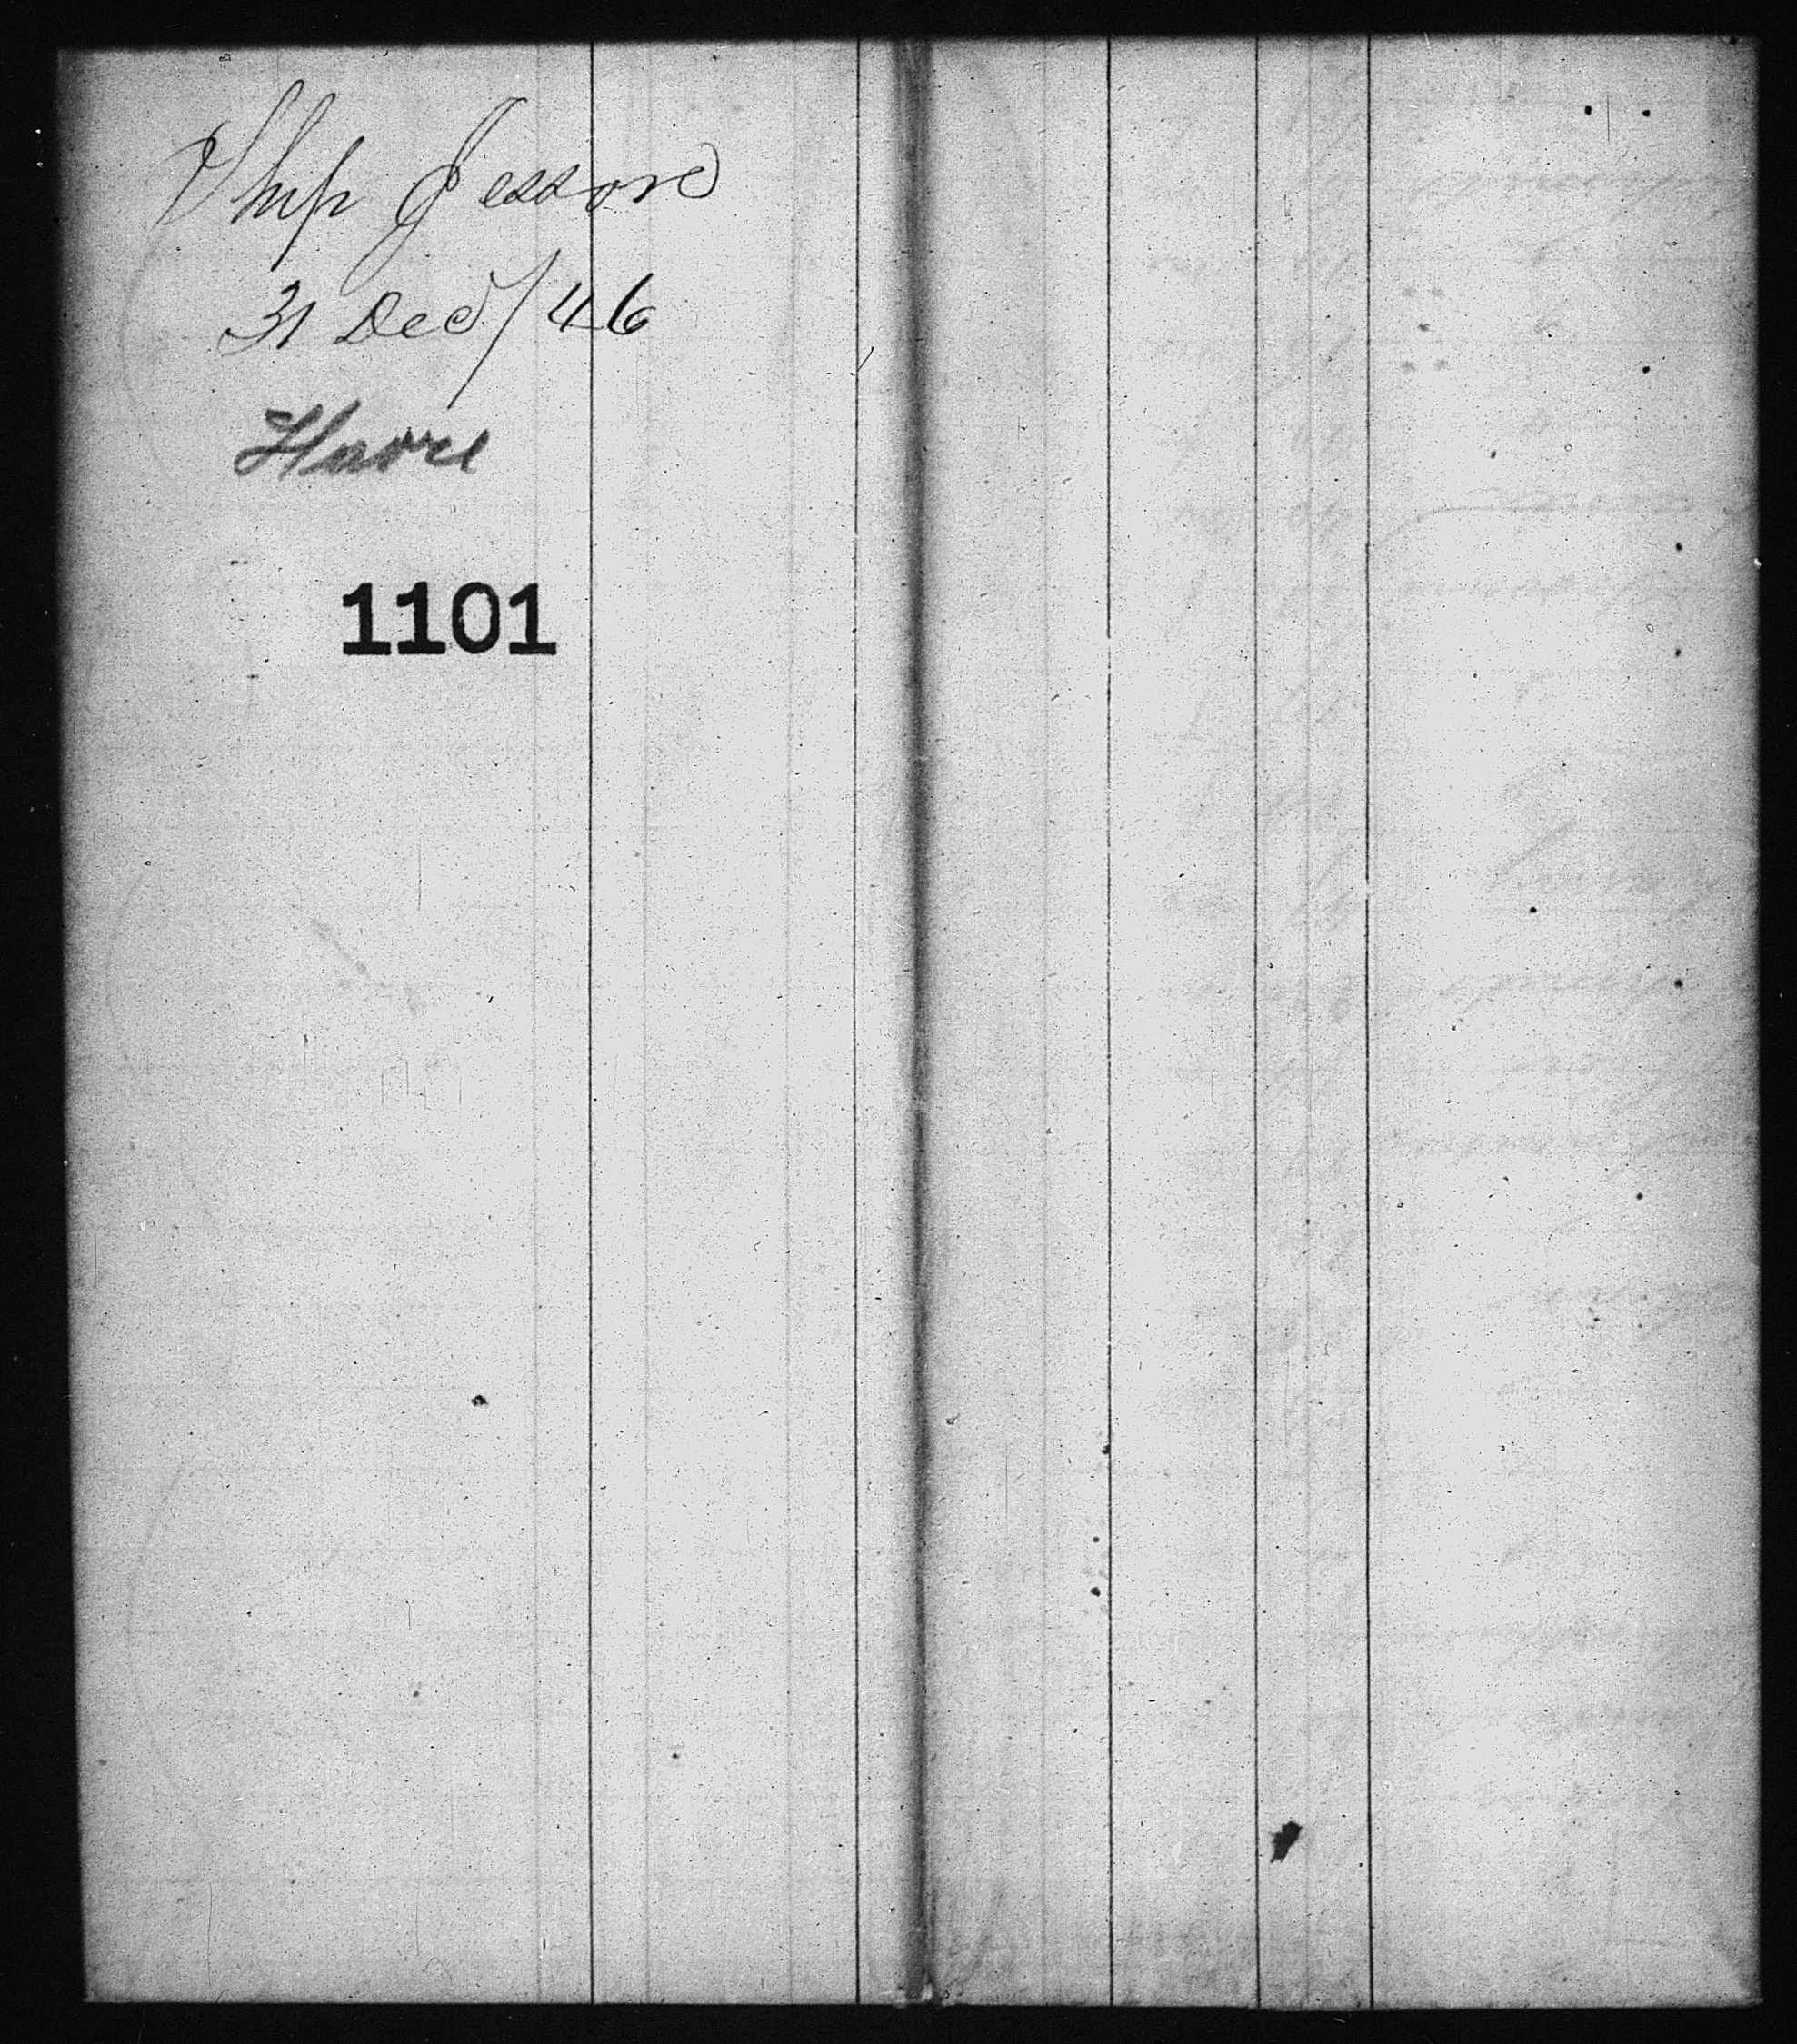 Ship Jessore
31 Dec/46
Havre
1101